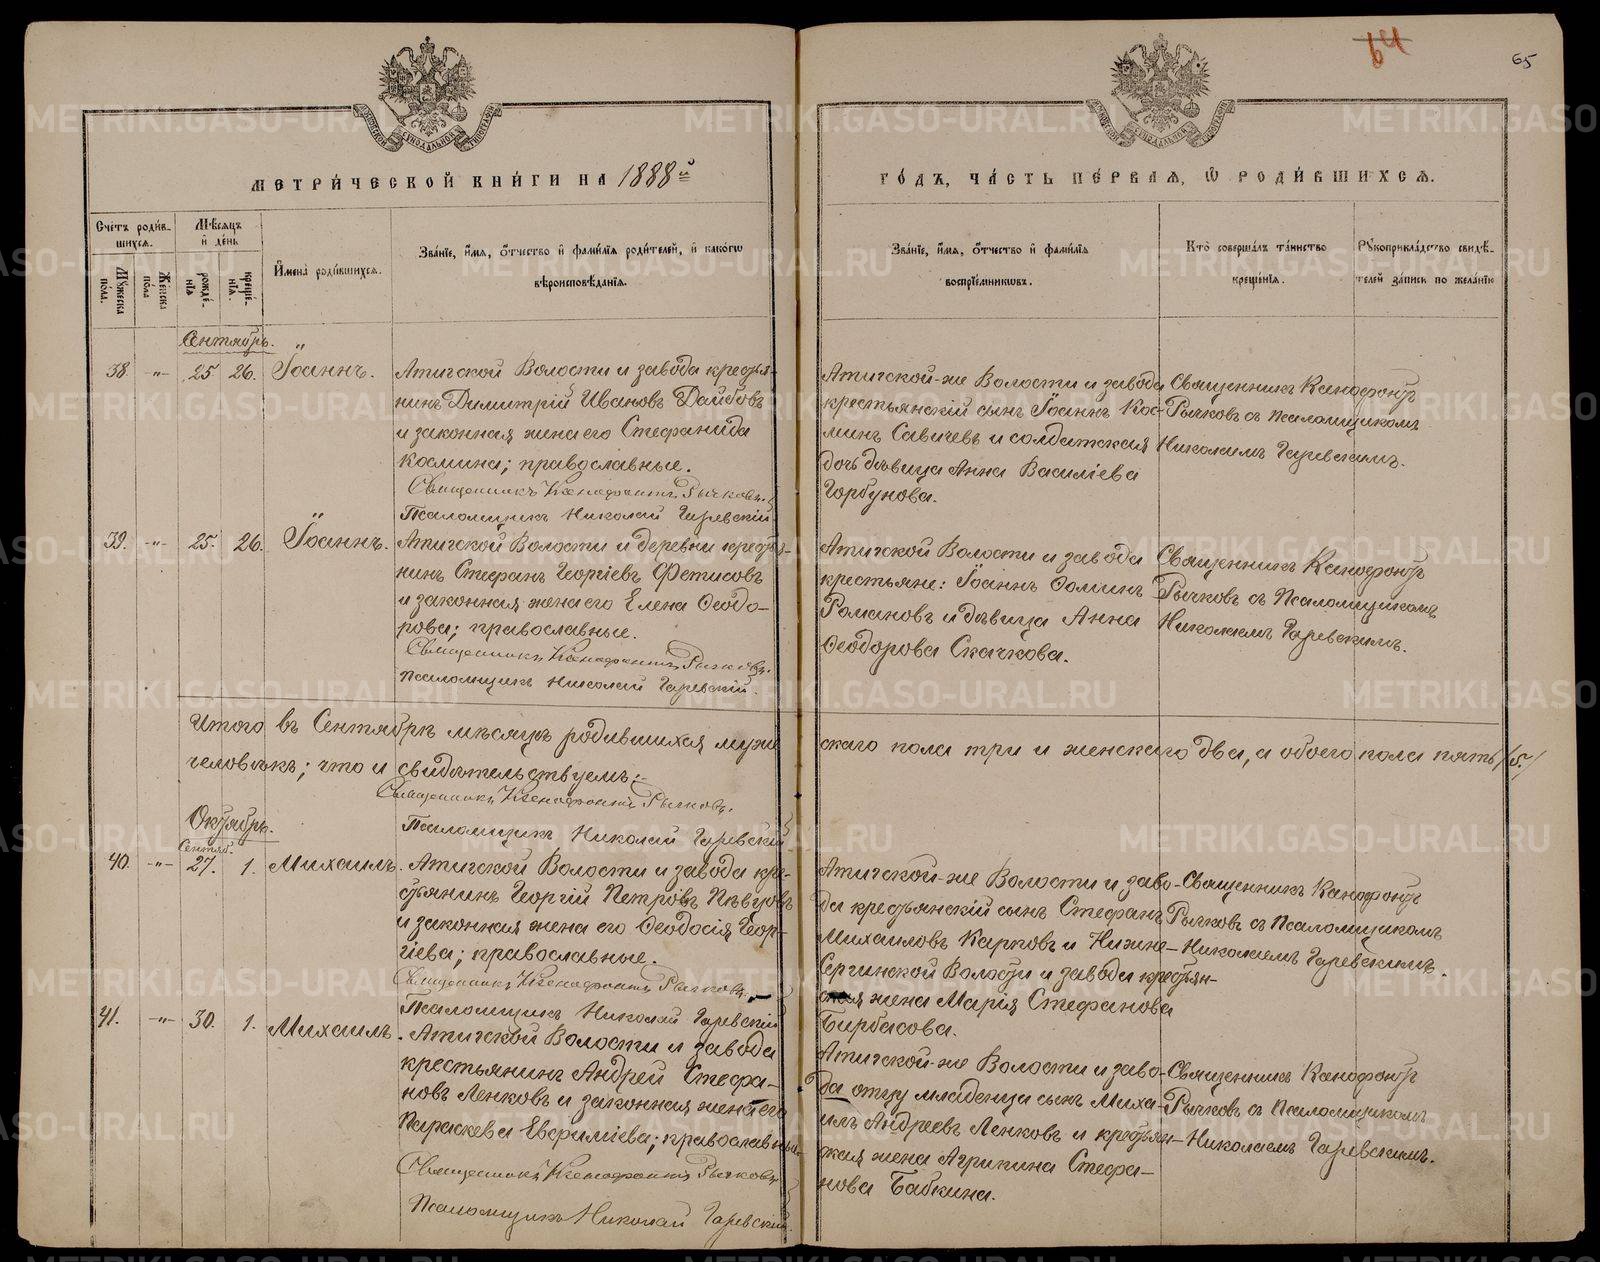 64
65
МЕТРИ́ЧЕСКОЙ КНИ́ГИ НА 1888й
ГО́ДЪ, ЧА́СТЬ ПЕ́РВАЯ, Ѡ РОДИ́ВШИХСЯ.
Сче́тъ роди́в-
шихся.
Му́жеска по́ла.
Же́нска по́ла
Мѣ́сяцъ
и́ день
рожде́-
нїя
креще́-
нїя.
И҆мена̀ роди́вшихся.
Зва́нїе, и҆́мя, ѻ҆́тчество и҆ фами́лїя роди́телей, и҆ како́гѡ
вѣроисповѣ́данїя.
Зва́нїе, и҆́мя, ѻ҆́тчество и҆ фами́лїя
воспрїе́мникѡвъ.
Кто̀ соверша́лъ та́инство
креще́нїя.
Рꙋкоприкла́дство свидѣ́-
телей за́писи по жела́нїю
Сентябрь.
38. -"- 25 26. Іоаннъ.
Атигской Волости и завода крестья-
нинъ Димитрій Ивановъ Дайбовъ
и законная жена его Стефанида
Космина; православные.
Священникъ Ксенофонтъ Рычковъ.
Псаломщикъ Николай Гаревскій.
Атигской-же Волости и завода
крестьянскій сынъ Іоаннъ Кос-
минъ Савичевъ и солдатская
дочь дѣвица Анна Василіева
Горбунова.
Священникъ Ксенофонтъ
Рычковъ съ Псаломщикомъ
Николаемъ Гаревскимъ.
39. -"- 25. 26. Іоаннъ.
Атигской Волости и деревни крестья-
нинъ Стефанъ Георгіевъ Фетисовъ
и законная жена его Елена Ѳеодо-
рова; православные.
Священникъ Ксенофонтъ Рычковъ.
Псаломщикъ Николай Гаревскій.
Атигской Волости и завода
крестьяне: Іоаннъ Ѳоминъ
Романовъ и дѣвица Анна
Ѳеодорова Скачкова.
Священникъ Ксенофонтъ
Рычковъ съ Псаломщикомъ
Николаемъ Гаревскимъ.
Итого въ Сентябрѣ мѣсяцѣ родившихся муже
скаго пола три и женскаго два, а обоего пола пять /5./
человѣкъ; что и свидѣтельствуемъ:
Священникъ Ксенофонтъ Рычковъ.
Псаломщикъ Николай Гаревскій
Октябрь.
Сентяб.
40. -"- 27. 1. Михаилъ.
Атигской Волости и завода кре-
стьянинъ Георгій Петровъ Пѣвцовъ
и законная жена его Ѳеодосія Геор-
гіева; православные.
Священникъ Ксенофонтъ Рычковъ.
Псаломщикъ Николай Гаревскій
Атигской-же Волости и заво-
да крестьянскій сынъ Стефанъ
Михаиловъ Карповъ и Нижне-
Сергинской Волости и завода крестьян-
ская жена Марія Стефанова
Бирбасова.
Священникъ Ксенофонтъ
Рычковъ съ Псаломщикомъ
Николаемъ Гаревскимъ.
41. -"- 30. 1. Михаилъ.
Атигской Волости и завода
крестьянинъ Андрей Стефа-
новъ Ленковъ и законная жена его
Параскева Евфиміева; православные
Священникъ Ксенофонтъ Рычковъ
Псаломщикъ Николай Гаревскій
Атигской-же Волости и заво-
да отцу младенца сынъ Миха-
илъ Андреевъ Ленковъ и крестьян-
ская жена Агрипина Стефа-
нова Бабкина.
Священникъ Ксенофонтъ
Рычковъ съ Псаломщикомъ
Николаемъ Гаревскимъ.
METRIKI.GASO-URAL.RU